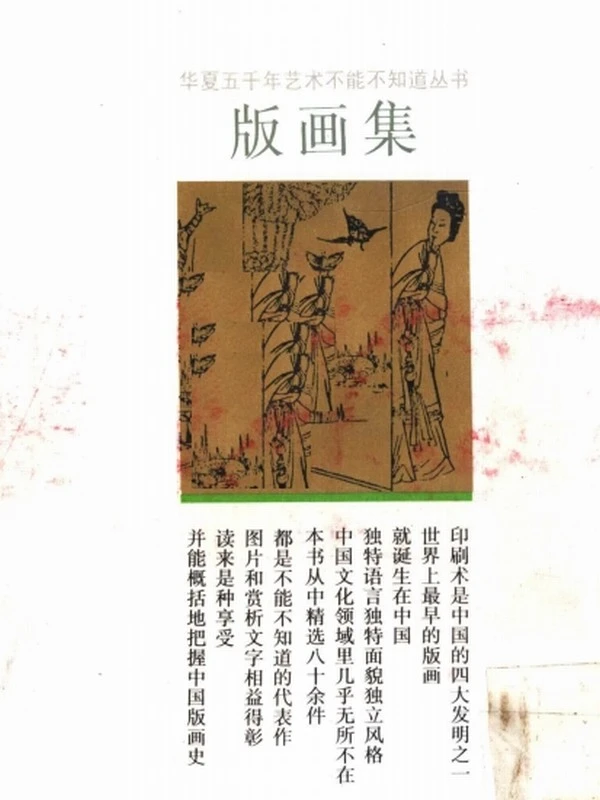 华夏五千年艺术不能不知道丛书
版画集
印刷术是中国的四大发明之一
世界上最早的版画
就诞生在中国
独特语言独特面貌独立风格
中国文化领域里几乎无所不在
本书从中精选八十余件
都是不能不知道的代表作
图片和赏析文字相益得彰
读来是种享受
并能概括地把握中国版画史